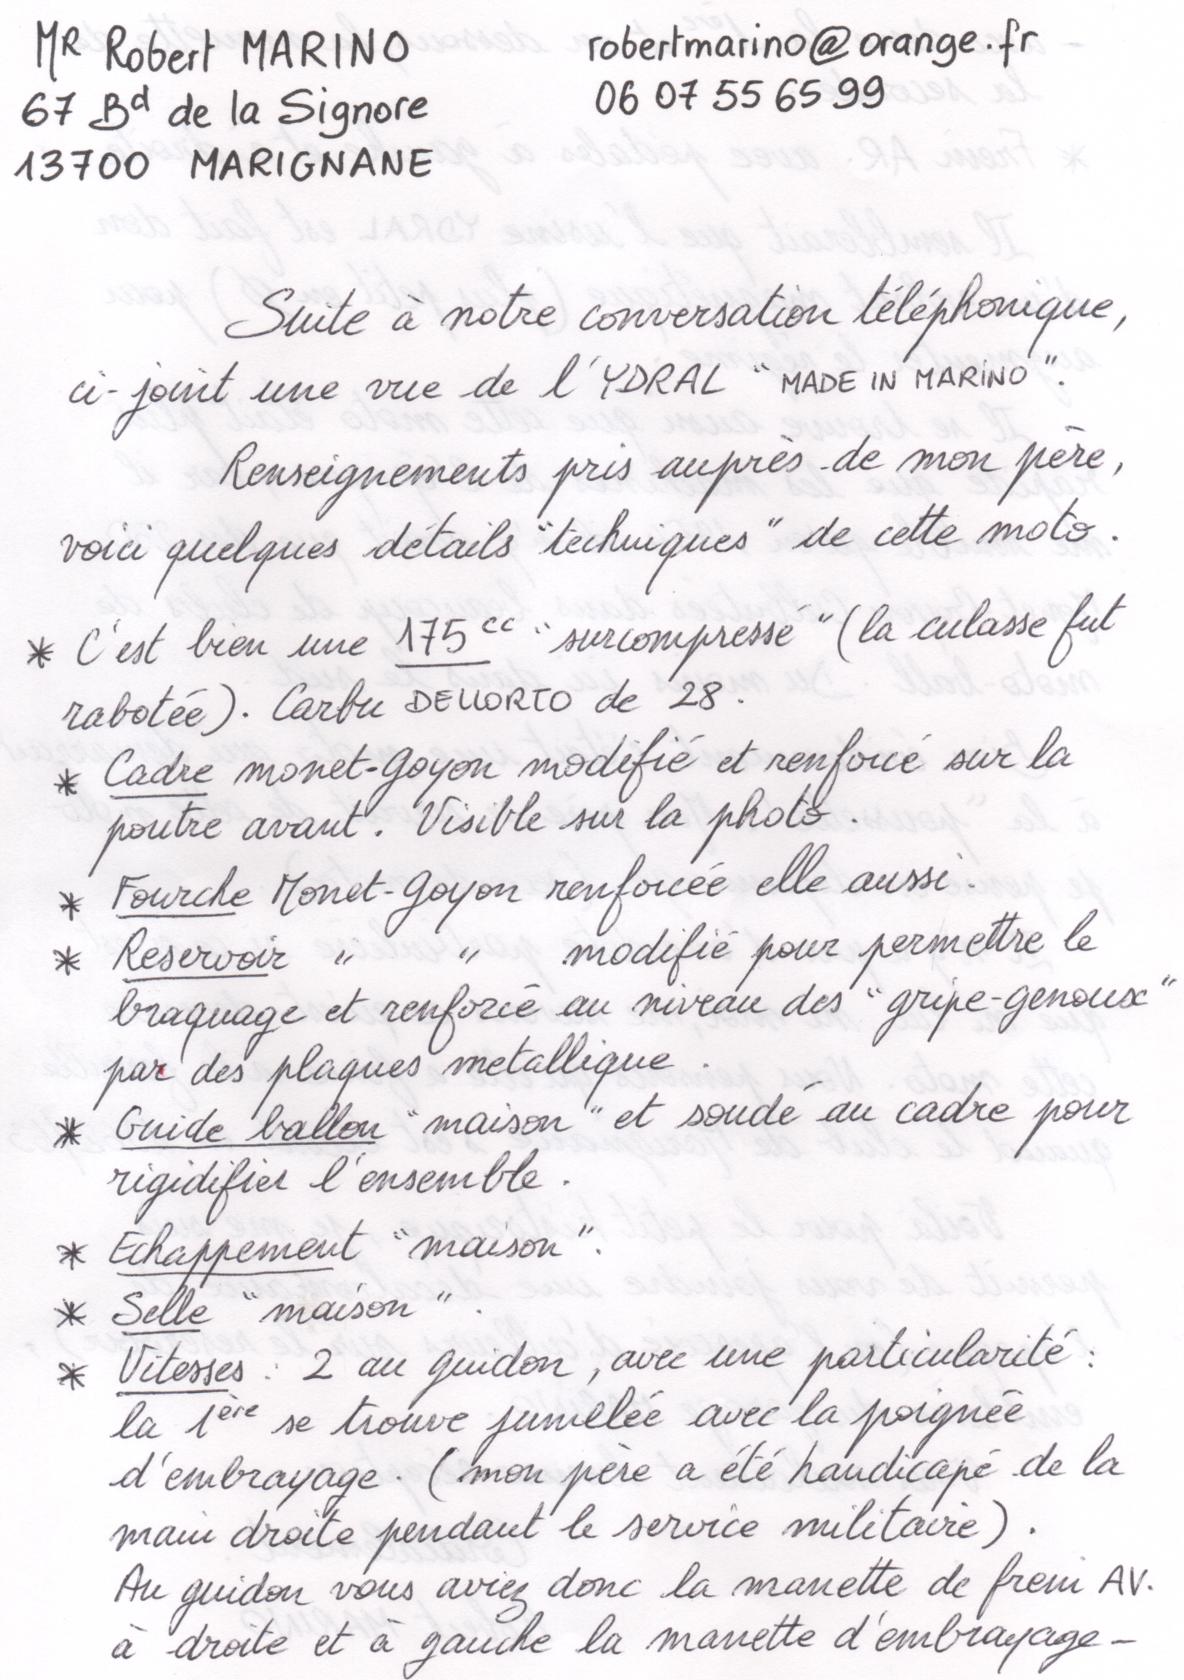 MR Robert MARINO
robertmarino@orange.fr
67 Bd de la Signore
06 07 55 65 99
13700 MARIGNANE
Suite à notre conversation téléphonique,
ci-joint une vue de l'YDRAL "MADE IN MARINO".
Renseignements pris auprès de mon père,
voici quelques détails "techniques" de cette moto.
* C'est bien une 175cc "surcompressé" (la culasse fut
rabotée). Carbu DELLORTO de 28.
* Cadre monet-Goyon modifié et renforcé sur la
poutre avant. Visible sur la photo.
* Fourche Monet-Goyon renforcée elle aussi.
* Reservoir " " modifié pour permettre le
braquage et renforcé au niveau des "gripe-genoux"
par des plaques metallique.
* Guide ballon "maison" et soudé au cadre pour
rigidifier l'ensemble.
* Echappement "maison".
* Selle "maison".
* Vitesses : 2 au guidon, avec une particularité :
la 1ère se trouve jumelée avec la poignée
d'embrayage. (mon père a été handicapé de la
main droite pendant le service militaire).
Au guidon vous aviez donc la manette de frein AV.
à droite et à gauche la manette d'embrayage-